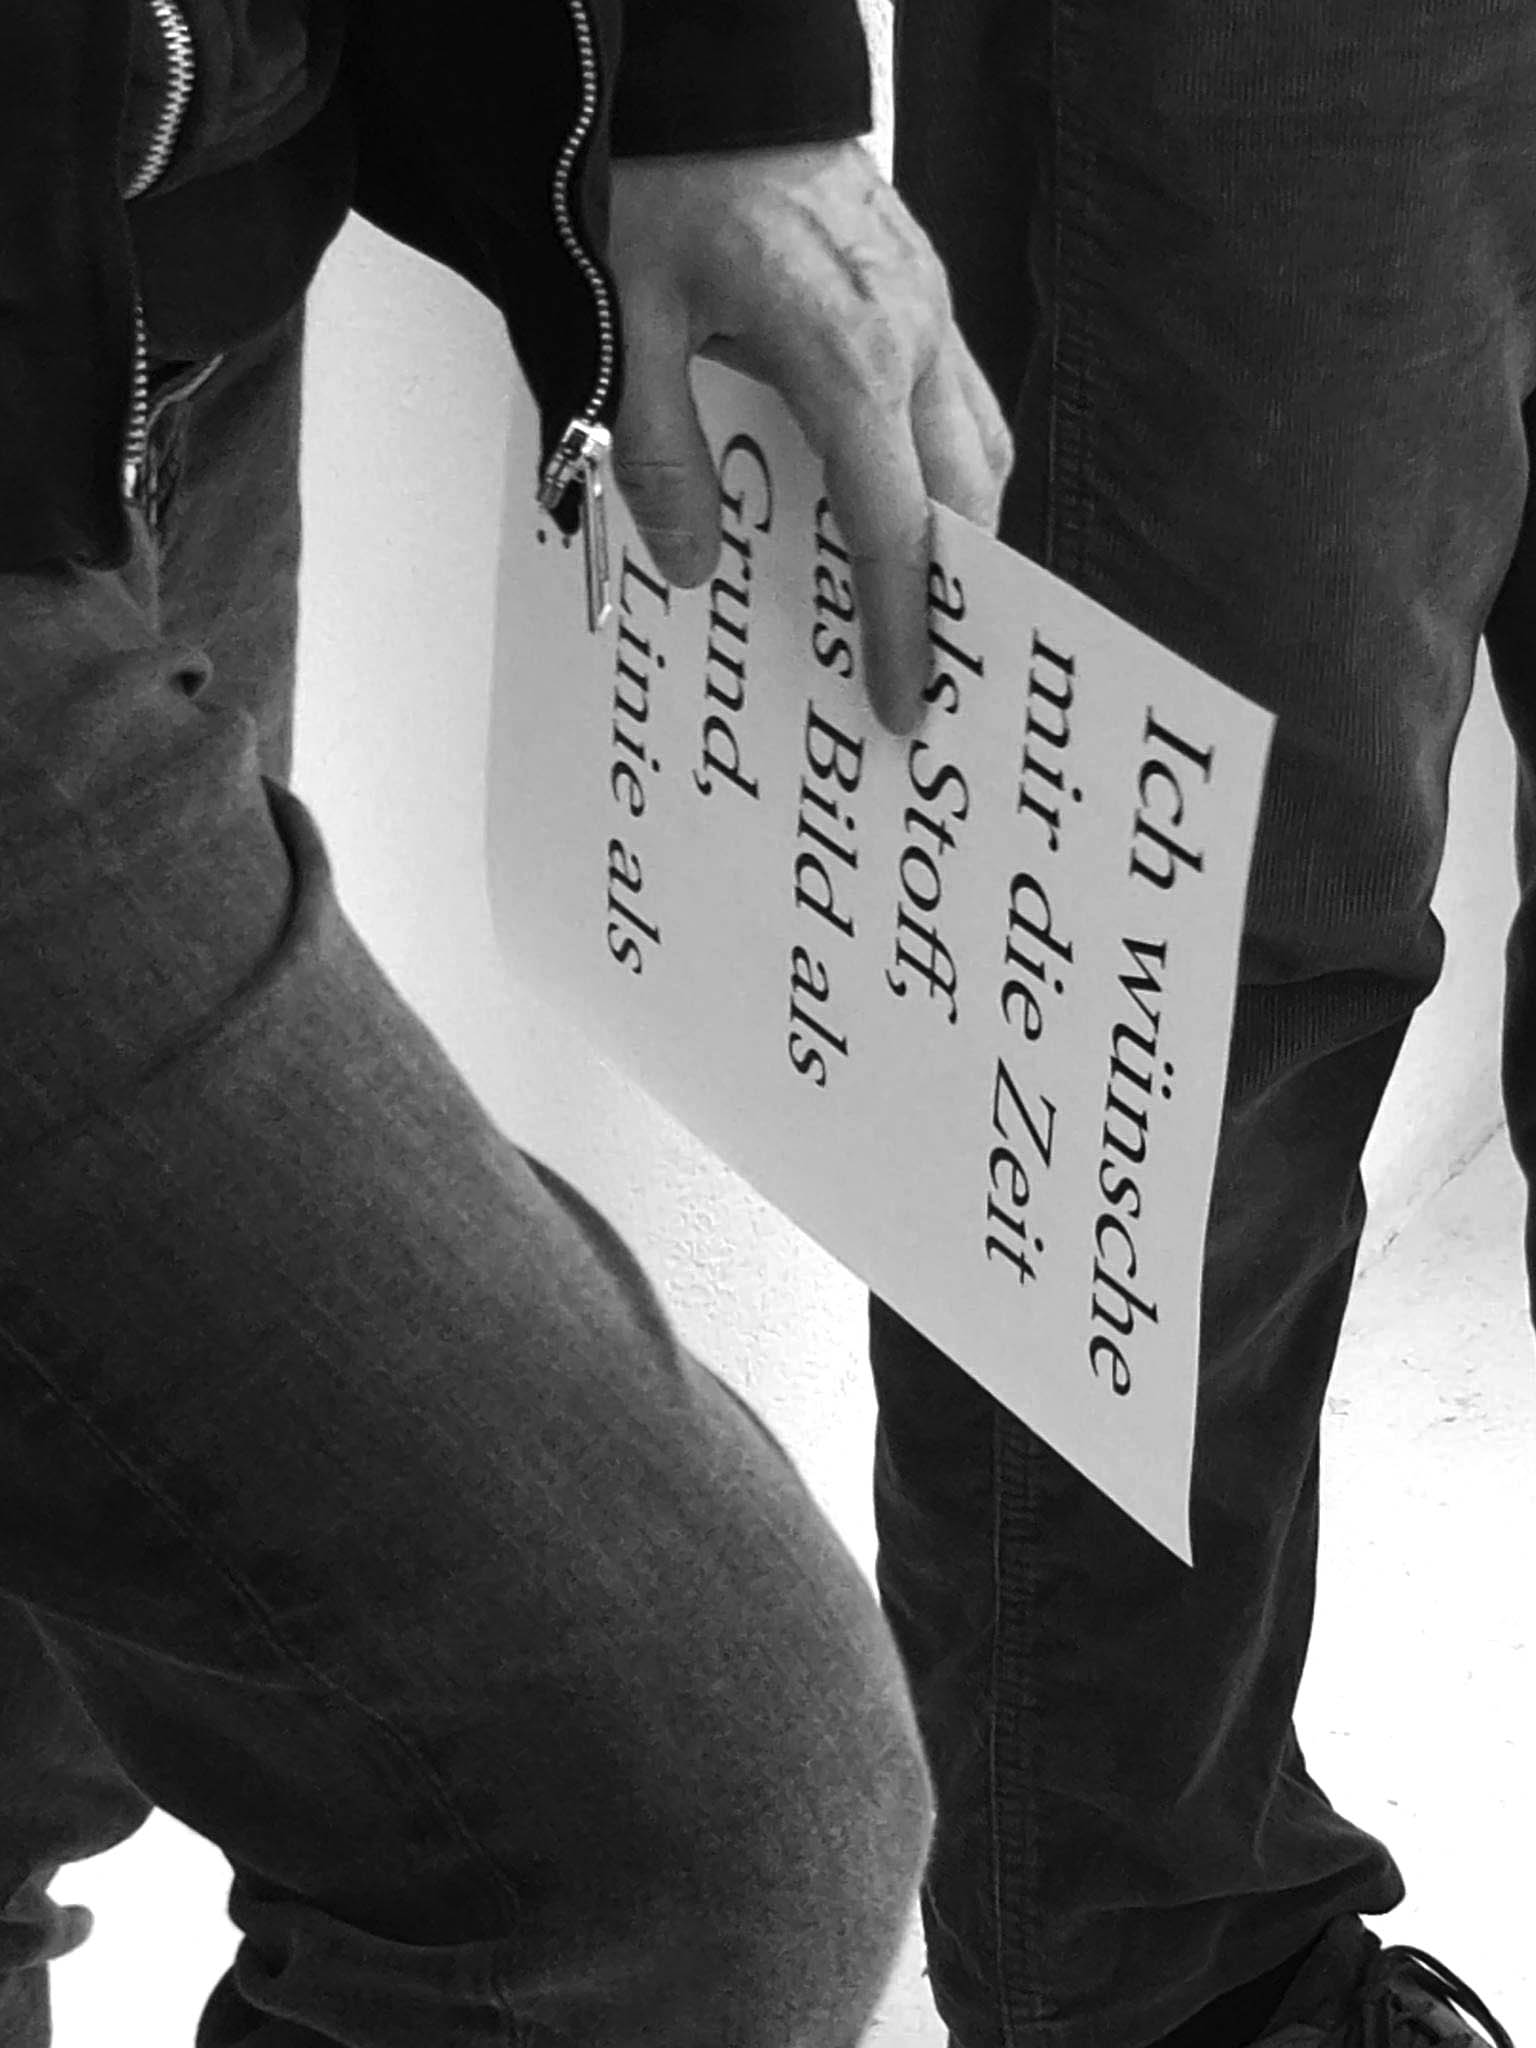 Ich wünsche
mir die Zeit
als Stoff,
das Bild als
Grund,
Linie als